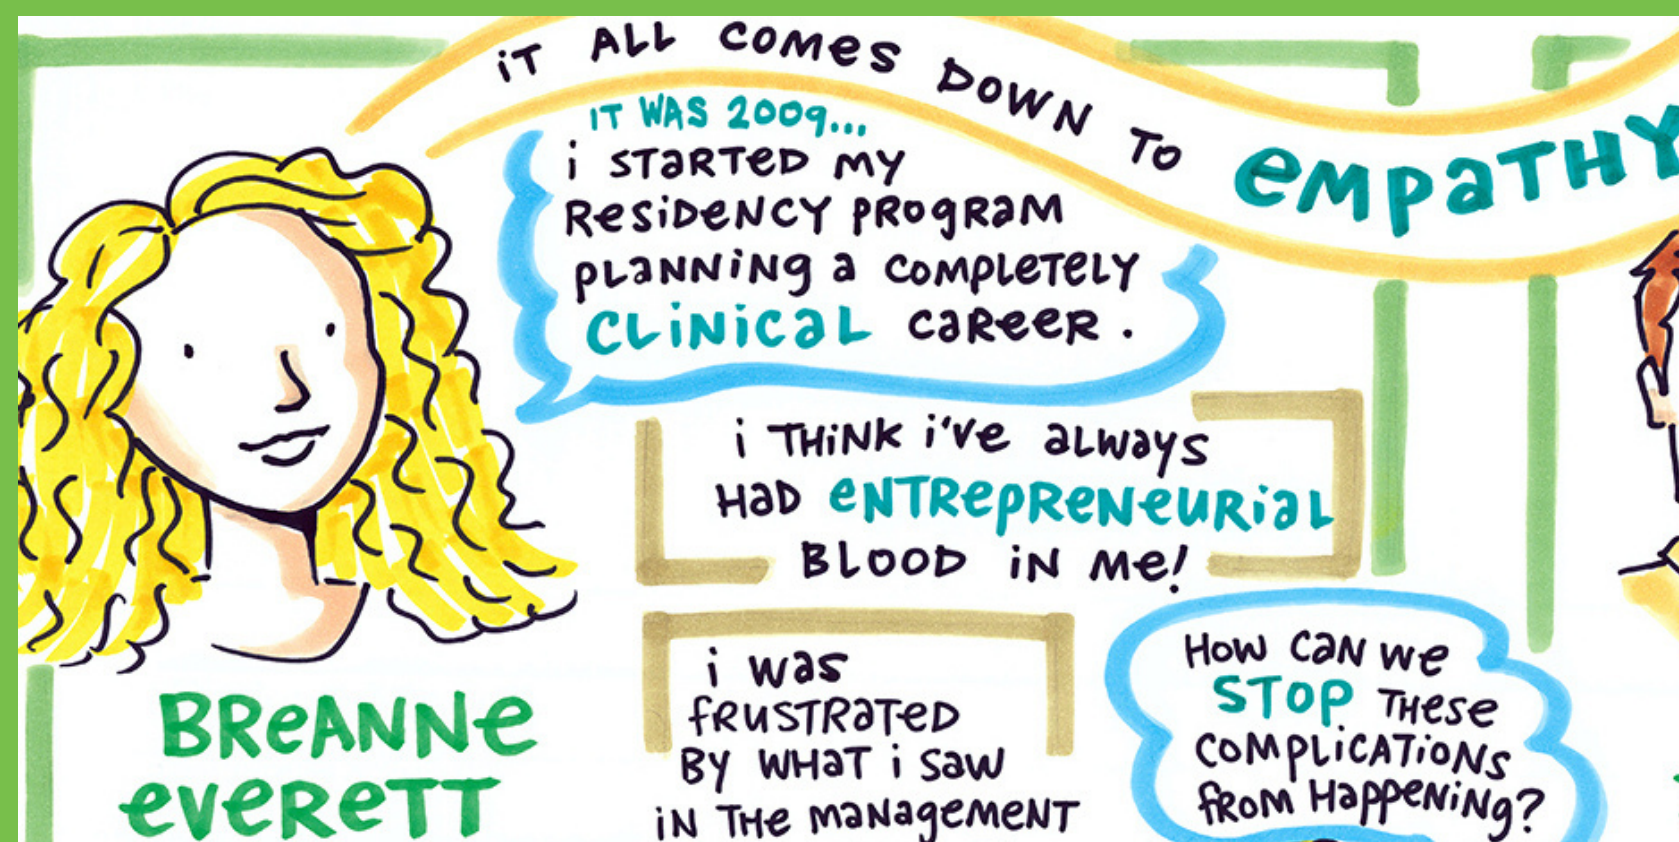 iT ALL COMeS DOWN TO eMPaTHY
IT WAS 2009...
i STaRTeD MY
ReSiDeNCY PROgRaM
PLaNNiNg a COMPLeTeLY
CLiNiCaL CaReeR.
i THiNK i've aLWaYS
HaD eNTRePReNeURiaL
BLOOD iN Me!
i was
fRUSTRaTeD
BY WHaT i Saw
iN THe MaNageMeNT
HOW CaN we
STOP THese
COMPLiCATiONS
fROM HaPPeNiNg?
BReANNe
eveReTT